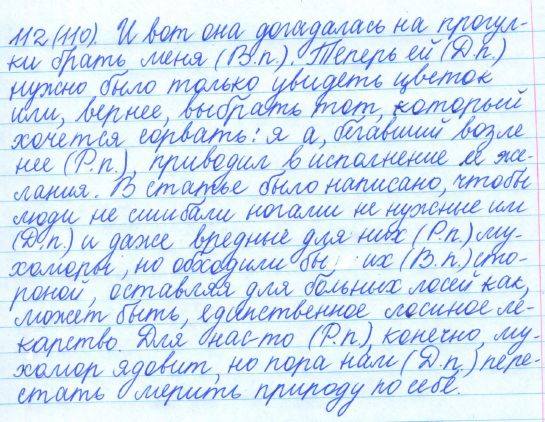 112 (110). И вот она догадалась на прогул-
ки брать меня (В.п.). Теперь ей (Д.п.)
нужно было только увидеть цветок
или, вернее, выбрать тот, который
хочется сорвать: я а, бегавший возле
нее (Р.п.), приводил в исполнение ее же-
лания. В статье было написано, чтобы
люди не сшибали ногами не нужные им
(Д.п.) и даже вредные для них (Р.п.) му-
хоморы, но обходили бы их (В.п.) сто-
роной, оставляя для больных лосей как,
может быть, единственное лосиное ле-
карство. Для нас-то (Р.п.), конечно, му-
хомор ядовит, но пора нам (Д.п.) пере-
стать мерить природу по себе.